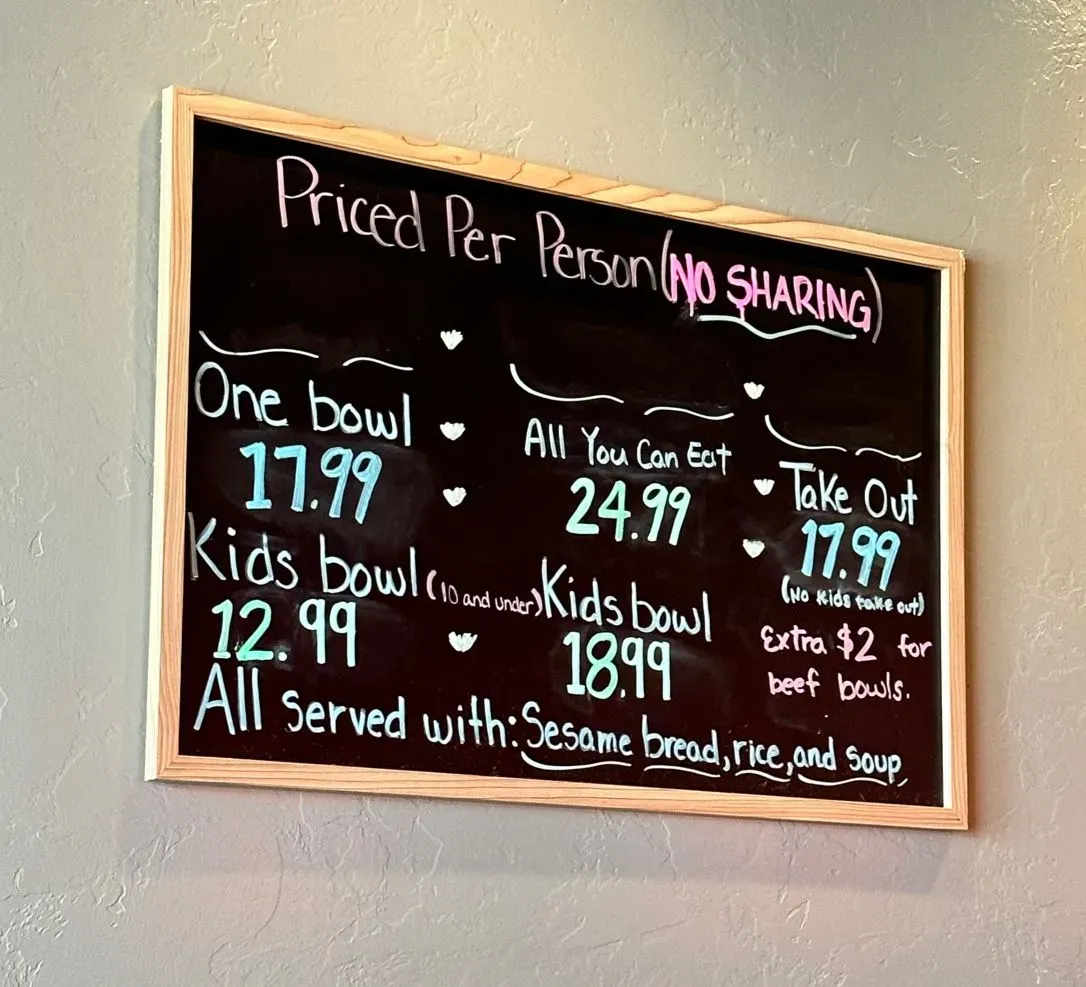 Priced Per Person (NO SHARING)
One bowl
17.99
Kids bowl (10 and under)
12.99
All You Can Eat
24.99
Kids bowl
18.99
Take Out
17.99
(No Kids take out)
Extra $2 for
beef bowls.
All served with: Sesame bread, rice, and soup